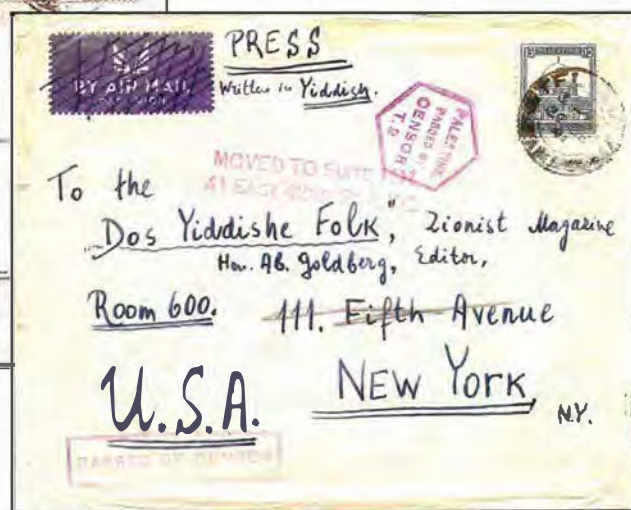 PRESS
BY AIR MAIL
Written in Yiddish.
PALESTINE
PASSED BY
CENSOR
T.2
MOVED TO SUITE
41 EAST
To the
„Dos Yiddishe Folk", Zionist Magazine
Hon. Ab. Goldberg, Editor,
Room 600. 111. Fifth Avenue
U.S.A. NEW YORK N.Y.
PASSED BY CENSOR